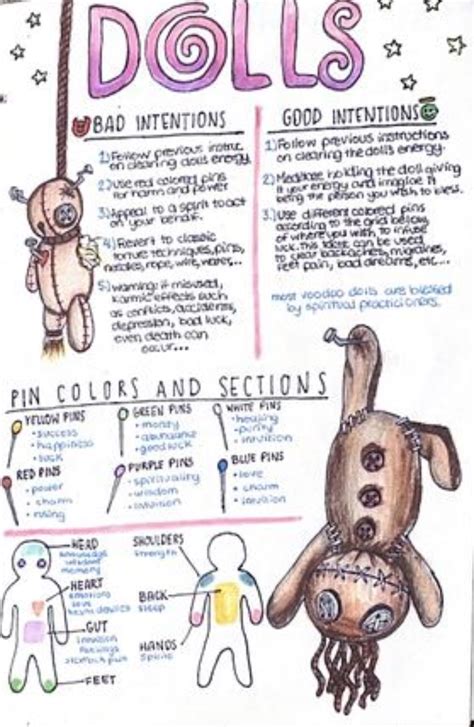 DOLLS
BAD INTENTIONS
1) Follow previous instruc.
on clearing dolls energy.
2) Use red colored pins
for harm and power
3) Appeal to a spirit to act
on your behalf.
4) Revert to classic
torture techniques, pins,
needles, rope, wire, water...
5) warning: if misused,
karmic effects such
as conflicts, accidents,
depression, bad luck,
even death can
occur...
GOOD INTENTIONS
1) Follow previous instructions
on clearing the doll's energy.
2) Meditate holding the doll giving
it your energy and imagine it
being the person you wish to bless.
3) Use different colored pins
according to the grid bellow
of where you wish to infuse
luck. This can be used
to clear backaches, migraines,
feet pain, bad dreams, etc...
most voodoo dolls are blessed
by spiritual practicioners.
PIN COLORS AND SECTIONS
YELLOW PINS
• success
• happiness
• luck
GREEN PINS
• money
• abundance
• good luck
WHITE PINS
• healing
• purity
• intuition
RED PINS
• power
• charm
PURPLE PINS
• spirituality
• wisdom
• intuition
BLUE PINS
• love
• charm
• intuition
HEAD
knowledge
memory
HEART
emotions
love
GUT
intuition
stomach pain
FEET
SHOULDERS
strength
BACK
sleep
HANDS